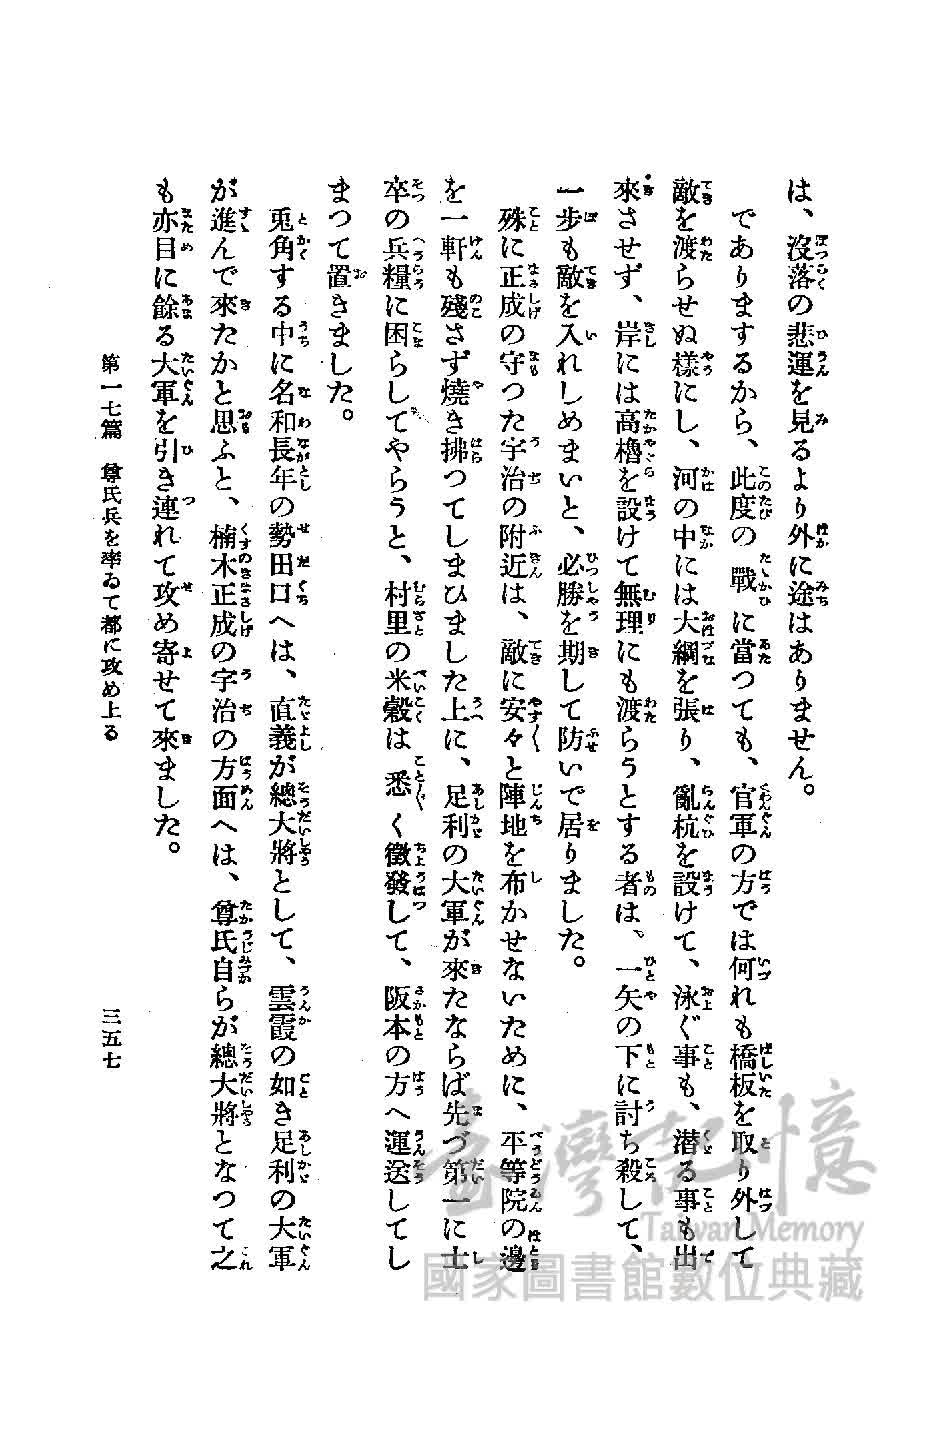 は、沒落の悲運を見るより外に途はありません。
でありまするから、此度の戰に當つても、官軍の方では何れも橋板を取り外して
敵を渡らせぬ樣にし、河の中には大綱を張り、亂杭を設けて、泳ぐ事も、潜る事も出
來させず、岸には高櫓を設けて無理にも渡らうとする者は、一矢の下に討ち殺して、
一歩も敵を入れしめまいと、必勝を期して防いで居りました。
殊に正成の守つた宇治の附近は、敵に安々と陣地を布かせないために、平等院の邊
を一軒も殘さず燒き拂つてしまひました上に、足利の大軍が來たならば先づ第一に士
卒の兵糧に困らしてやらうと、村里の米穀は悉く徴發して、阪本の方へ運送してし
まつて置きました。
兎角する中に名和長年の勢田口へは、直義が總大將として、雲霞の如き足利の大軍
が進んで來たかと思ふと、楠木正成の宇治の方面へは、尊氏自らが總大將となつて之
も亦目に餘る大軍を引き連れて攻め寄せて來ました。
第一七篇 尊氏兵を率ゐて都に攻め上る
三五七
臺灣記憶
Taiwan Memory
國家圖書館數位典藏